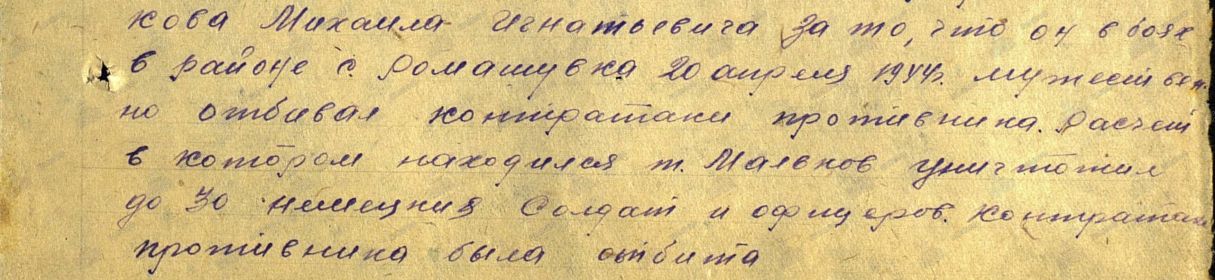 кова Михаила Игнатьевича за то, что он в боях
в районе с. Ромашувка 20 апреля 1944г. мужествен-
но отбивал контратаки противника. Расчет
в котором находился т. Мальков уничтожил
до 30 немецких солдат и офицеров. Контратака
противника была отбита